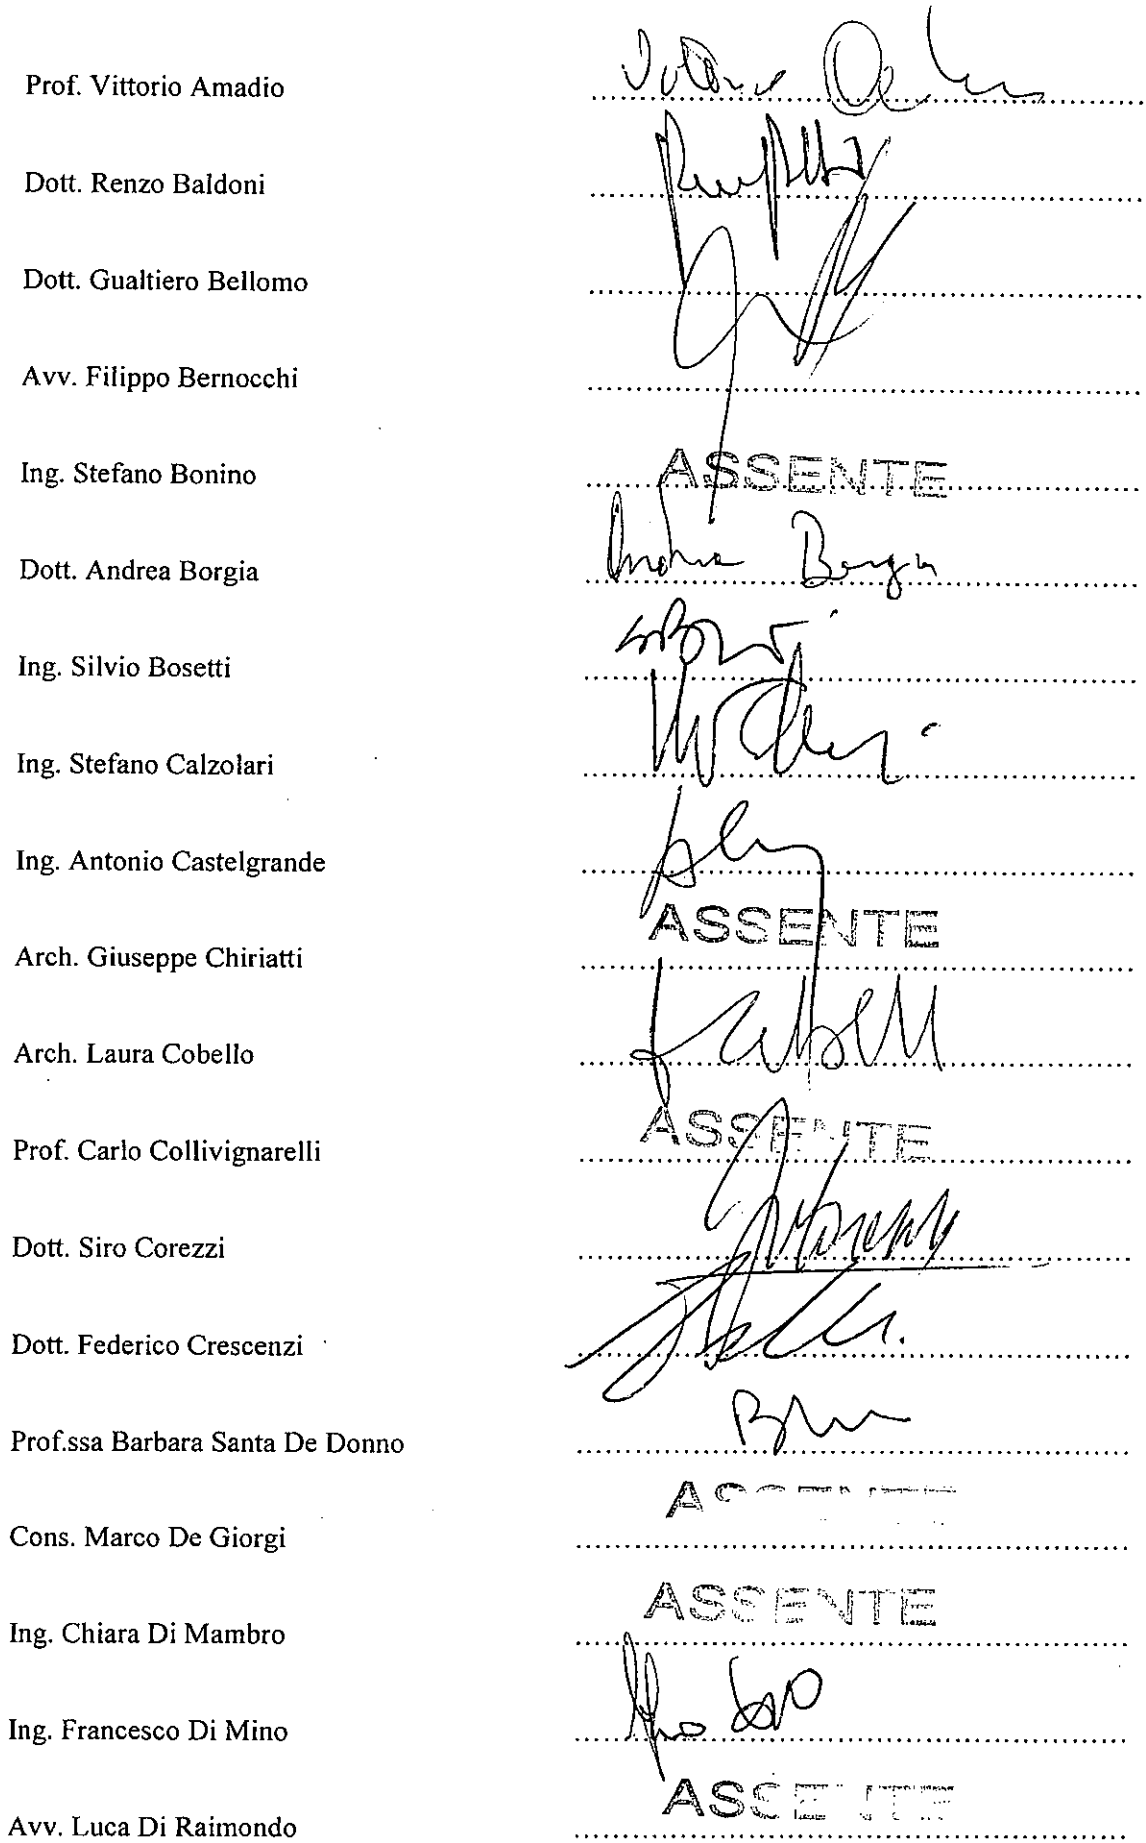 Prof. Vittorio Amadio
Dott. Renzo Baldoni
Dott. Gualtiero Bellomo
Avv. Filippo Bernocchi
Ing. Stefano Bonino ASSENTE
Dott. Andrea Borgia Andrea Borgia
Ing. Silvio Bosetti
Ing. Stefano Calzolari
Ing. Antonio Castelgrande
Arch. Giuseppe Chiriatti ASSENTE
Arch. Laura Cobello
Prof. Carlo Collivignarelli ASSENTE
Dott. Siro Corezzi
Dott. Federico Crescenzi
Prof.ssa Barbara Santa De Donno
Cons. Marco De Giorgi ASSENTE
Ing. Chiara Di Mambro ASSENTE
Ing. Francesco Di Mino
Avv. Luca Di Raimondo ASSENTE